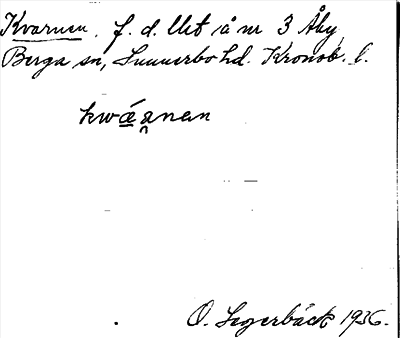 Kvarnen, f. d. lht å nr 3 Åby,
Berga sn, Sunnerbo hd. Kronob. l.
kwǽa̯nan
O. Segerbäck 1936.